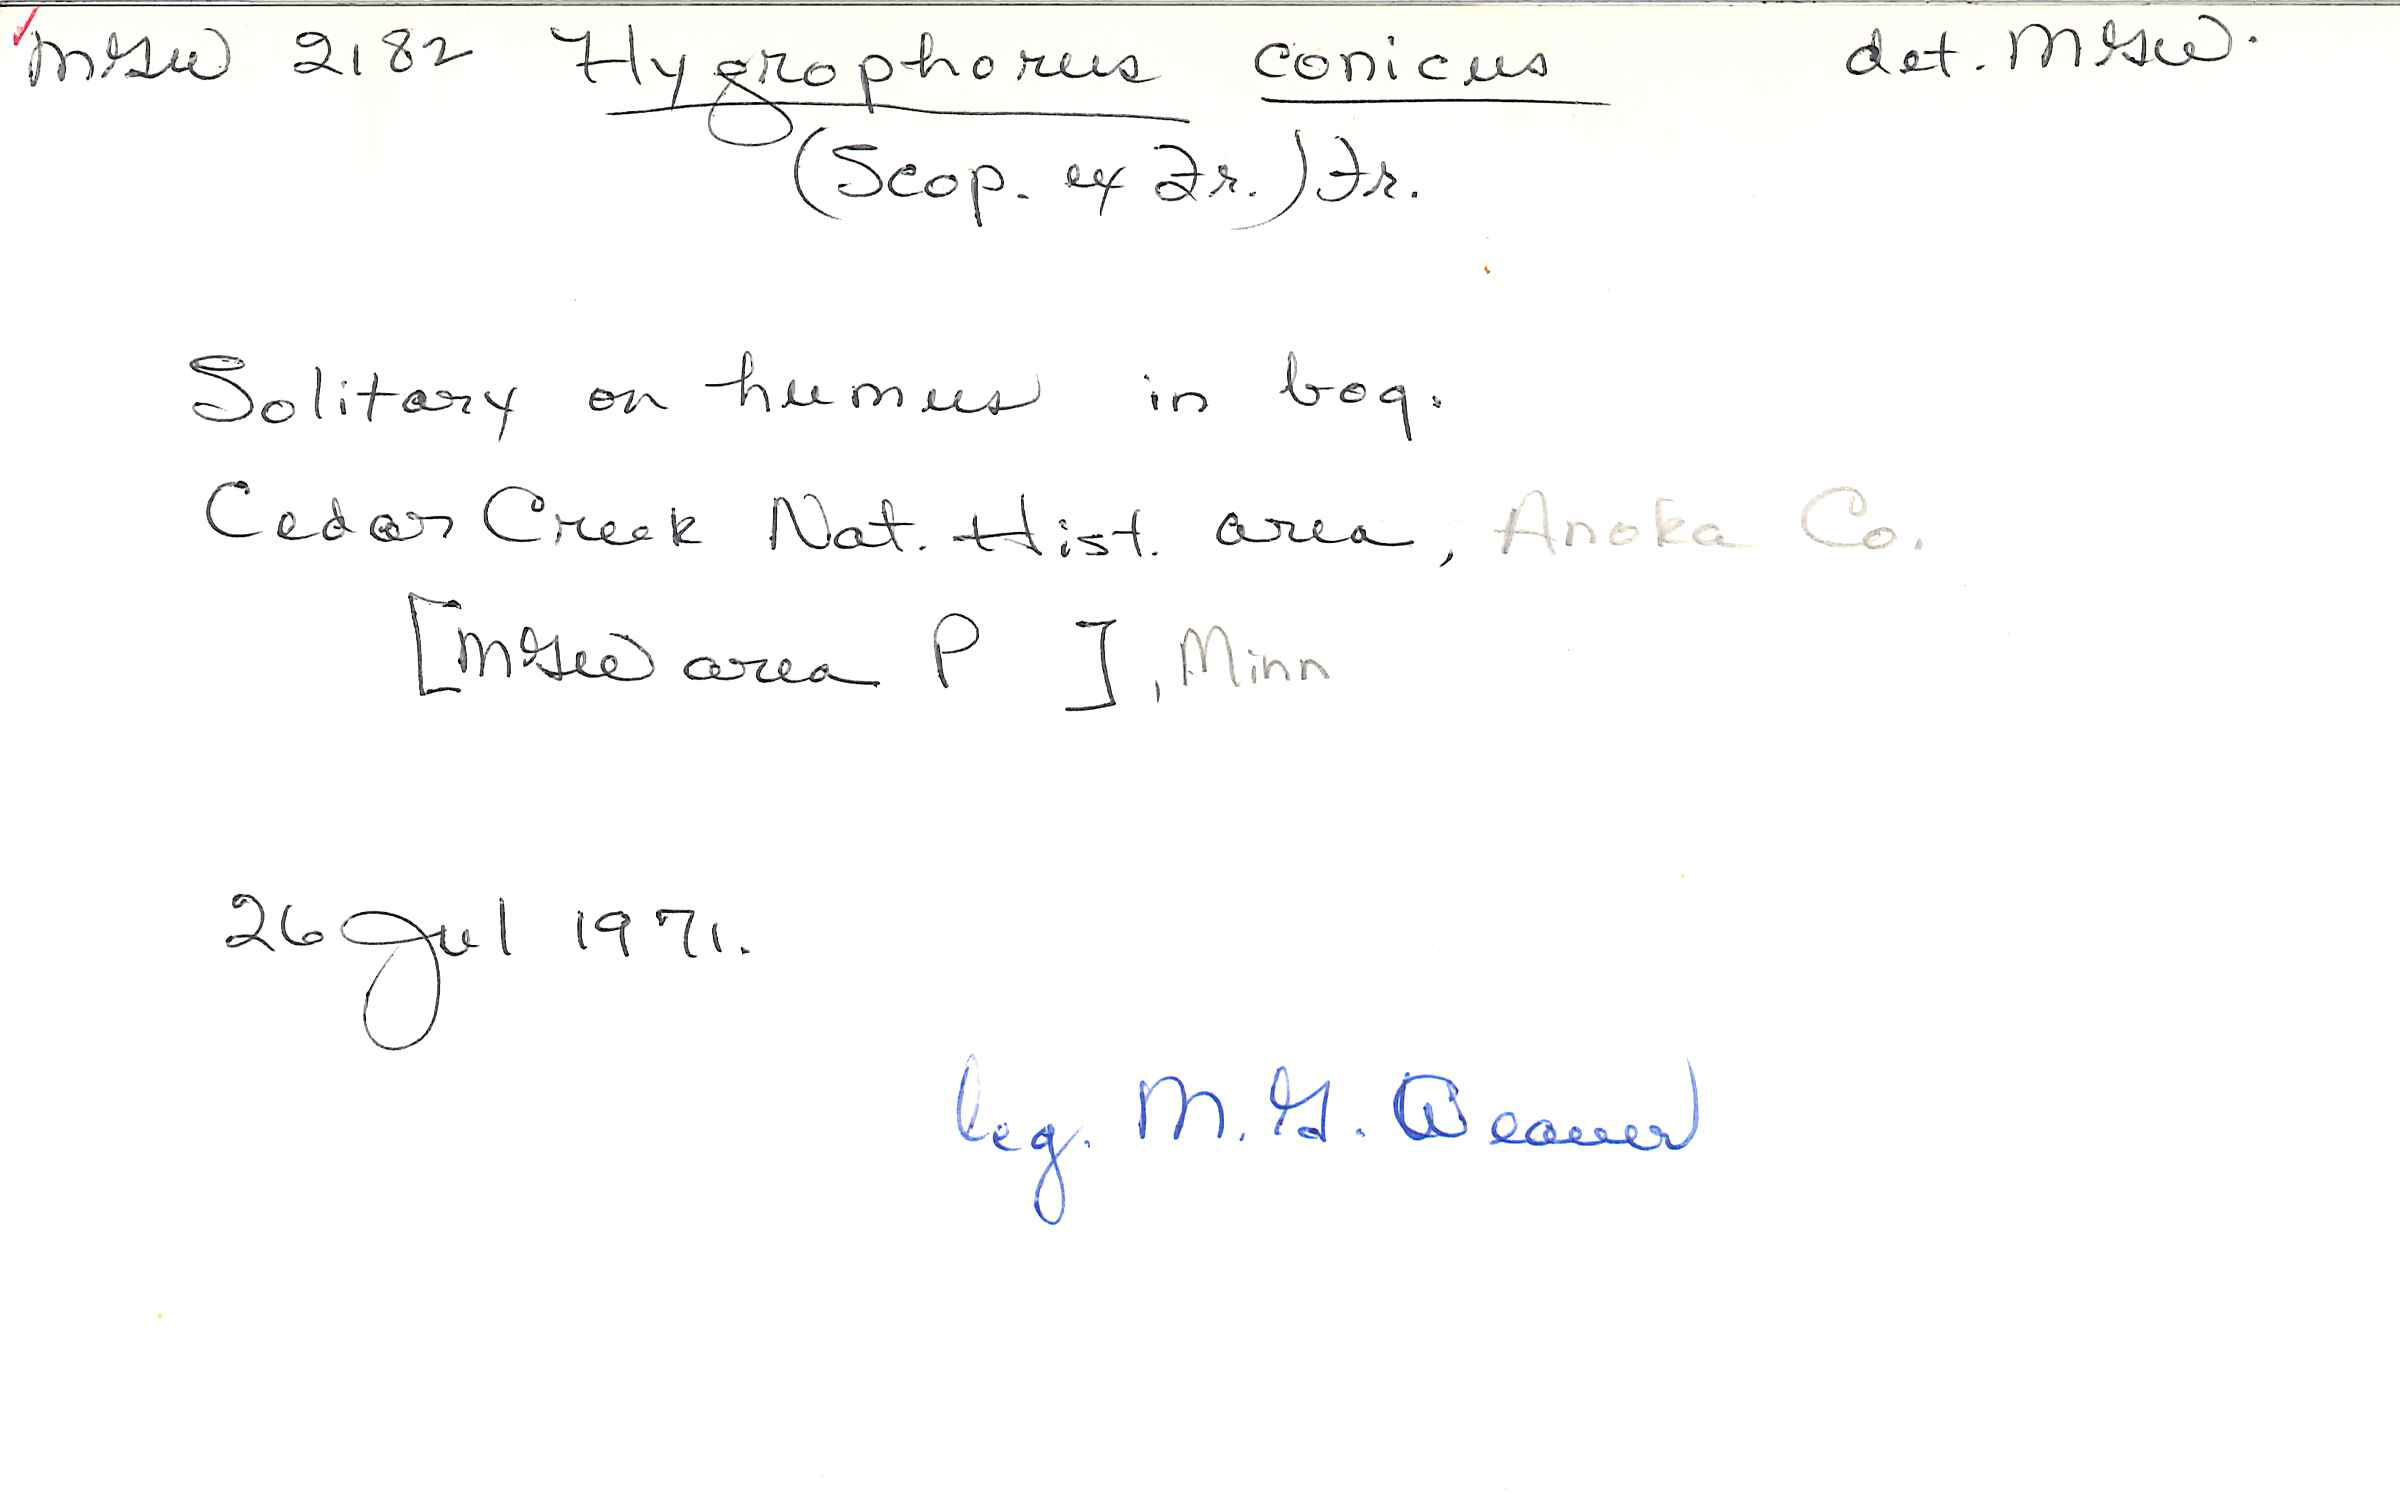 MGW 2182 Hygrophorus conicus det. MGW.
(Scop. ex Fr.) Fr.
Solitary on humus in bog.
Cedar Creek Nat. Hist. area, Anoka Co.
[MGW area P ], Minn
26 Jul 1971.
leg. M. G. Weaver